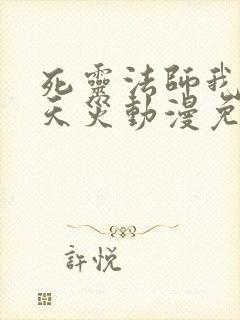 死靈法師我
天災動漫免
許悅